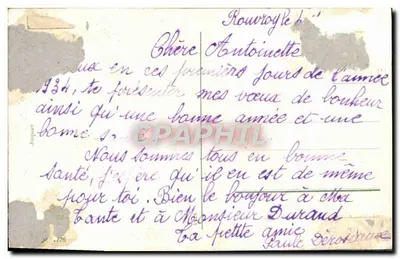 Rouvroy le 6
Chère Antoinette
en ces premiers jours de l'année
1934, te présenter mes vœux de bonheur
ainsi qu'une bonne année et une
bonne s
CPAPHIL
Nous sommes tous en bonne
santé, j' ère qu'il en est de même
pour toi. Bien le bonjour à Ma
tante et à Monsieur Durand
Ta petite amie
Paule